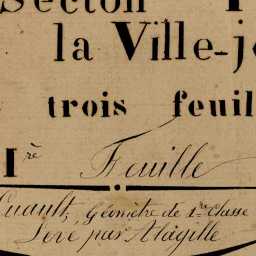 Section
la Ville-j
trois feuil
1re Feuille
Géomètre de 1re Classe
Levé par